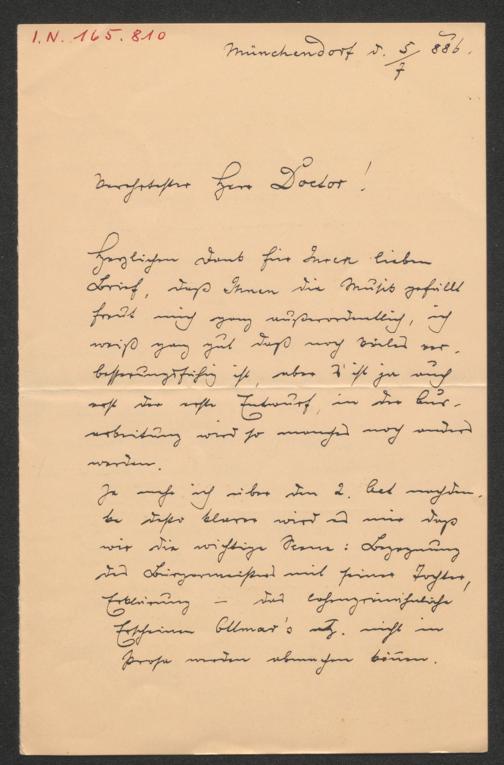 I.N. 165.810
Münchendorf d. 5/7 886.
Verehrtester Herr Doctor!
Herzlichen Dank für Ihren lieben
Brief, daß Ihnen die Musik gefällt
freut mich ganz außerordentlich, ich
weiß ganz gut daß noch vieles ver-
besserungsfähig ist, aber es ist ja auch
erst der erste Entwurf, in der Aus-
arbeitung wird so manches noch anders
werden.
Je mehr ich über den 2. Act nachden-
ke desto klarer wird es mir daß
wir die wichtige Scene: Begegnung
des Bürgermeisters mit seiner Tochter,
Erklärung – das lohengrinähnliche
Erscheinen Ottmar's etz. nicht in
Prosa werden abmachen können.